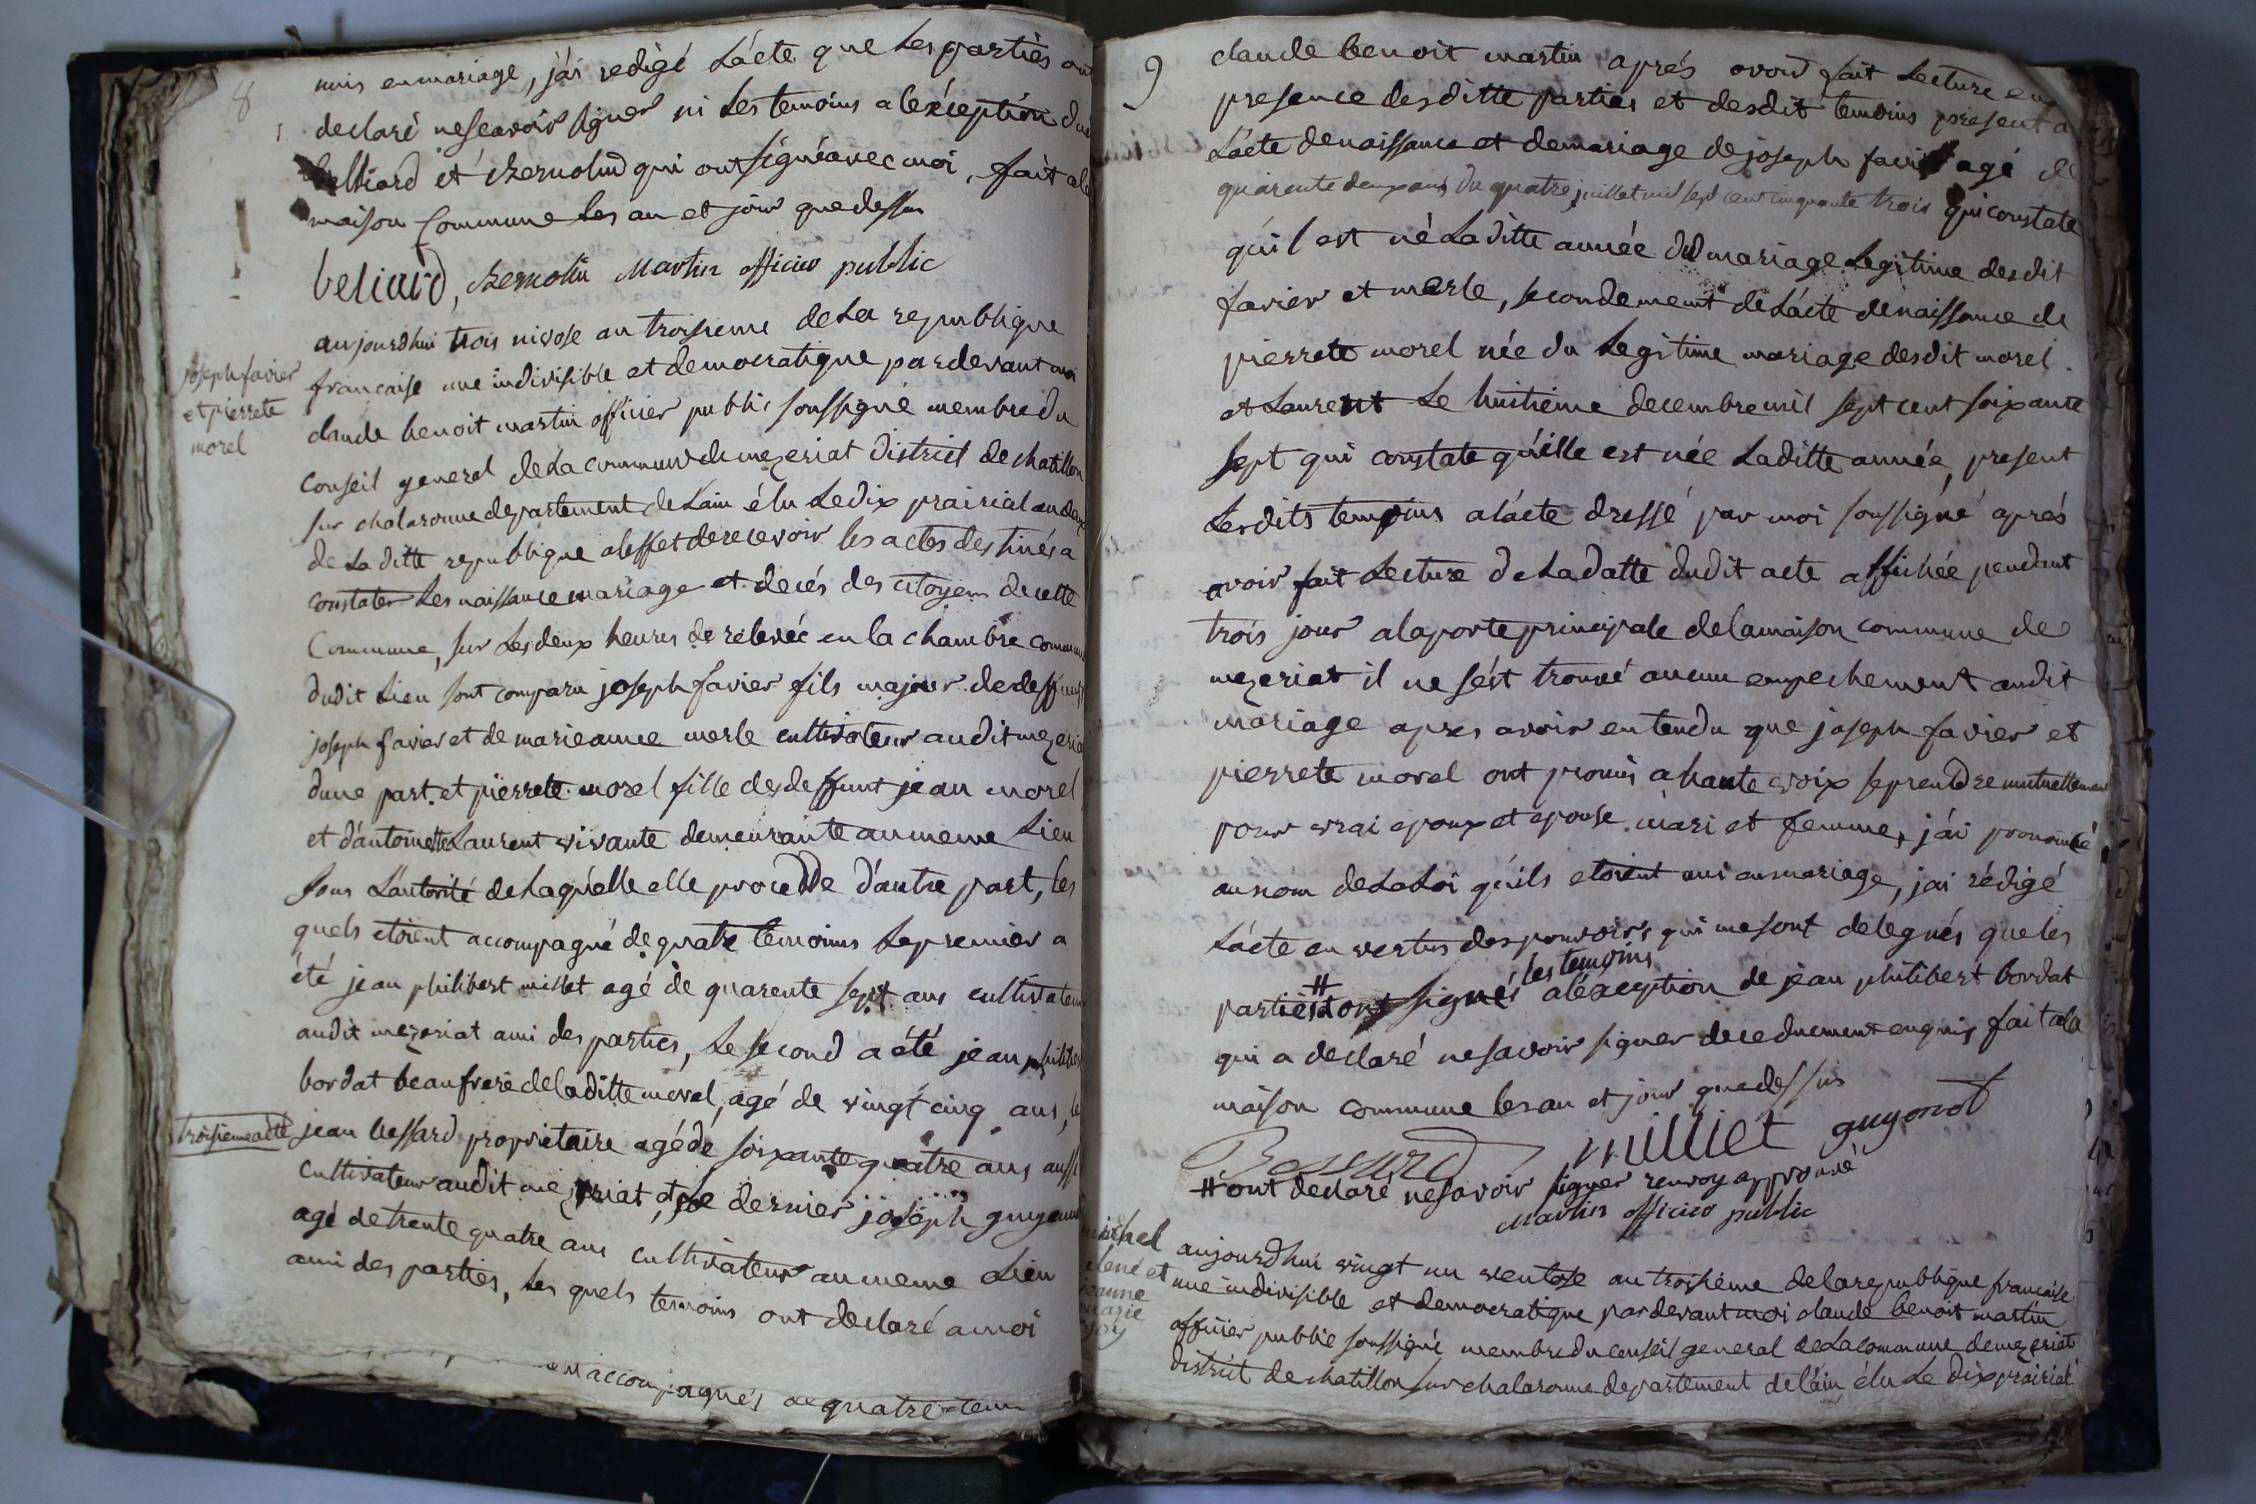 8
unis en mariage, j'ai redigé L'acte que Les parties ont
declaré nescavoir signer ni Les temoins a lexception du
belliard et chernolin qui ont signé avec moi, fait ala
maison Commune Les an et jour que dessus
beliard, chernolin Martin officier public
joseph favier
et pierrete
morel
aujourdhui trois nivose an troisieme de La republique
francaise une indivisible et democratique pardevant moi
claude benoit martin officier public soussigné membre du
Conseil general de La commune de mezeriat District de chatillon
sur chalaronne departement de Lain élu Le dix prairial an deux
de La ditte republique a leffet de recevoir les actes destinés a
constater Les naissance mariage et decés des citoyens de cette
Commune, sur Les deux heures de relevée en la chambre commune
dudit Lieu sont comparu joseph favier fils majeur de deffunt
joseph favier et de marieanne merle cultivateur audit mezeriat
dune part et pierrete morel fille des deffunt jean morel
et d'antoinette Laurent vivante demeurante au meme Lieu
sous L'autorité de Laquelle elle procedde d'autre part, les
quels etoient accompagné de quatre temoins Le premier a
été jean philibert millet agé de quarente sept ans cultivateur
audit mezeriat ami des parties, Le second a été jean philibert
bordat beaufrere de laditte morel, agé de vingt cinq ans, le
troisieme acté
jean bessard propriétaire agé dé soixante quatre ans aussi
cultivateur audit mezeriat, Le dernier joséph guyonnet
agé de trente quatre ans cultivateur au meme Lieu
ami des parties, Les quels temoins ont declaré a moi
accompagnés de quatre tem
9
claude benoit martin aprés avoir fait Lecture en
presence desditte parties et desdit temoins present a
L'acte de naissance et de mariage de joseph favier agé de
quarente deux ans du quatre juillet mil sept cent cinquante trois qui constate
qu'il est né La ditte année du mariage Legitime desdit
favier et merle, secondement de L'acte de naissance de
pierrete morel née du Legitime mariage desdit morel
et Laurent Le huitieme decembre mil sept cent soixante
sept qui constate qu'elle est née Laditte année, present
Lesdits temoins a l'acte dressé par moi soussigné aprés
avoir fait Lecture de La datte dudit acte affichée pendant
trois jour a la porte principale de la maison commune de
mezeriat il ne s'est trouvé aucun empechement audit
mariage apres avoir entendu que joseph favier et
pierrete morel ont promis a haute voix se prendre mutuellement
pour vrai epoux et epouse mari et femme, j'ai prononcé
au nom de La Loi qu'ils etoient uni en mariage, jai rédigé
L'acte en vertus des pouvoirs qui me sont delegués que les
parties # ont signés les temoins a léxception de jean philibert bordat
qui a declaré ne savoir signer de ce duement enquis fait a la
maison commune les an et jour que dessus
Bessard milliet guyonnet
# ont declaré ne savoir signer renvoy approuvé
Martin officier public
aujourdhui vingt un ventose an troisiéme de la republique francaise
une indivisible et democratique pardevant moi claude benoit martin
officier public soussigné membre du conseil general de La commune de mezeriat
district de chatillon sur chalaronne departement de láin élu Le dix prairial